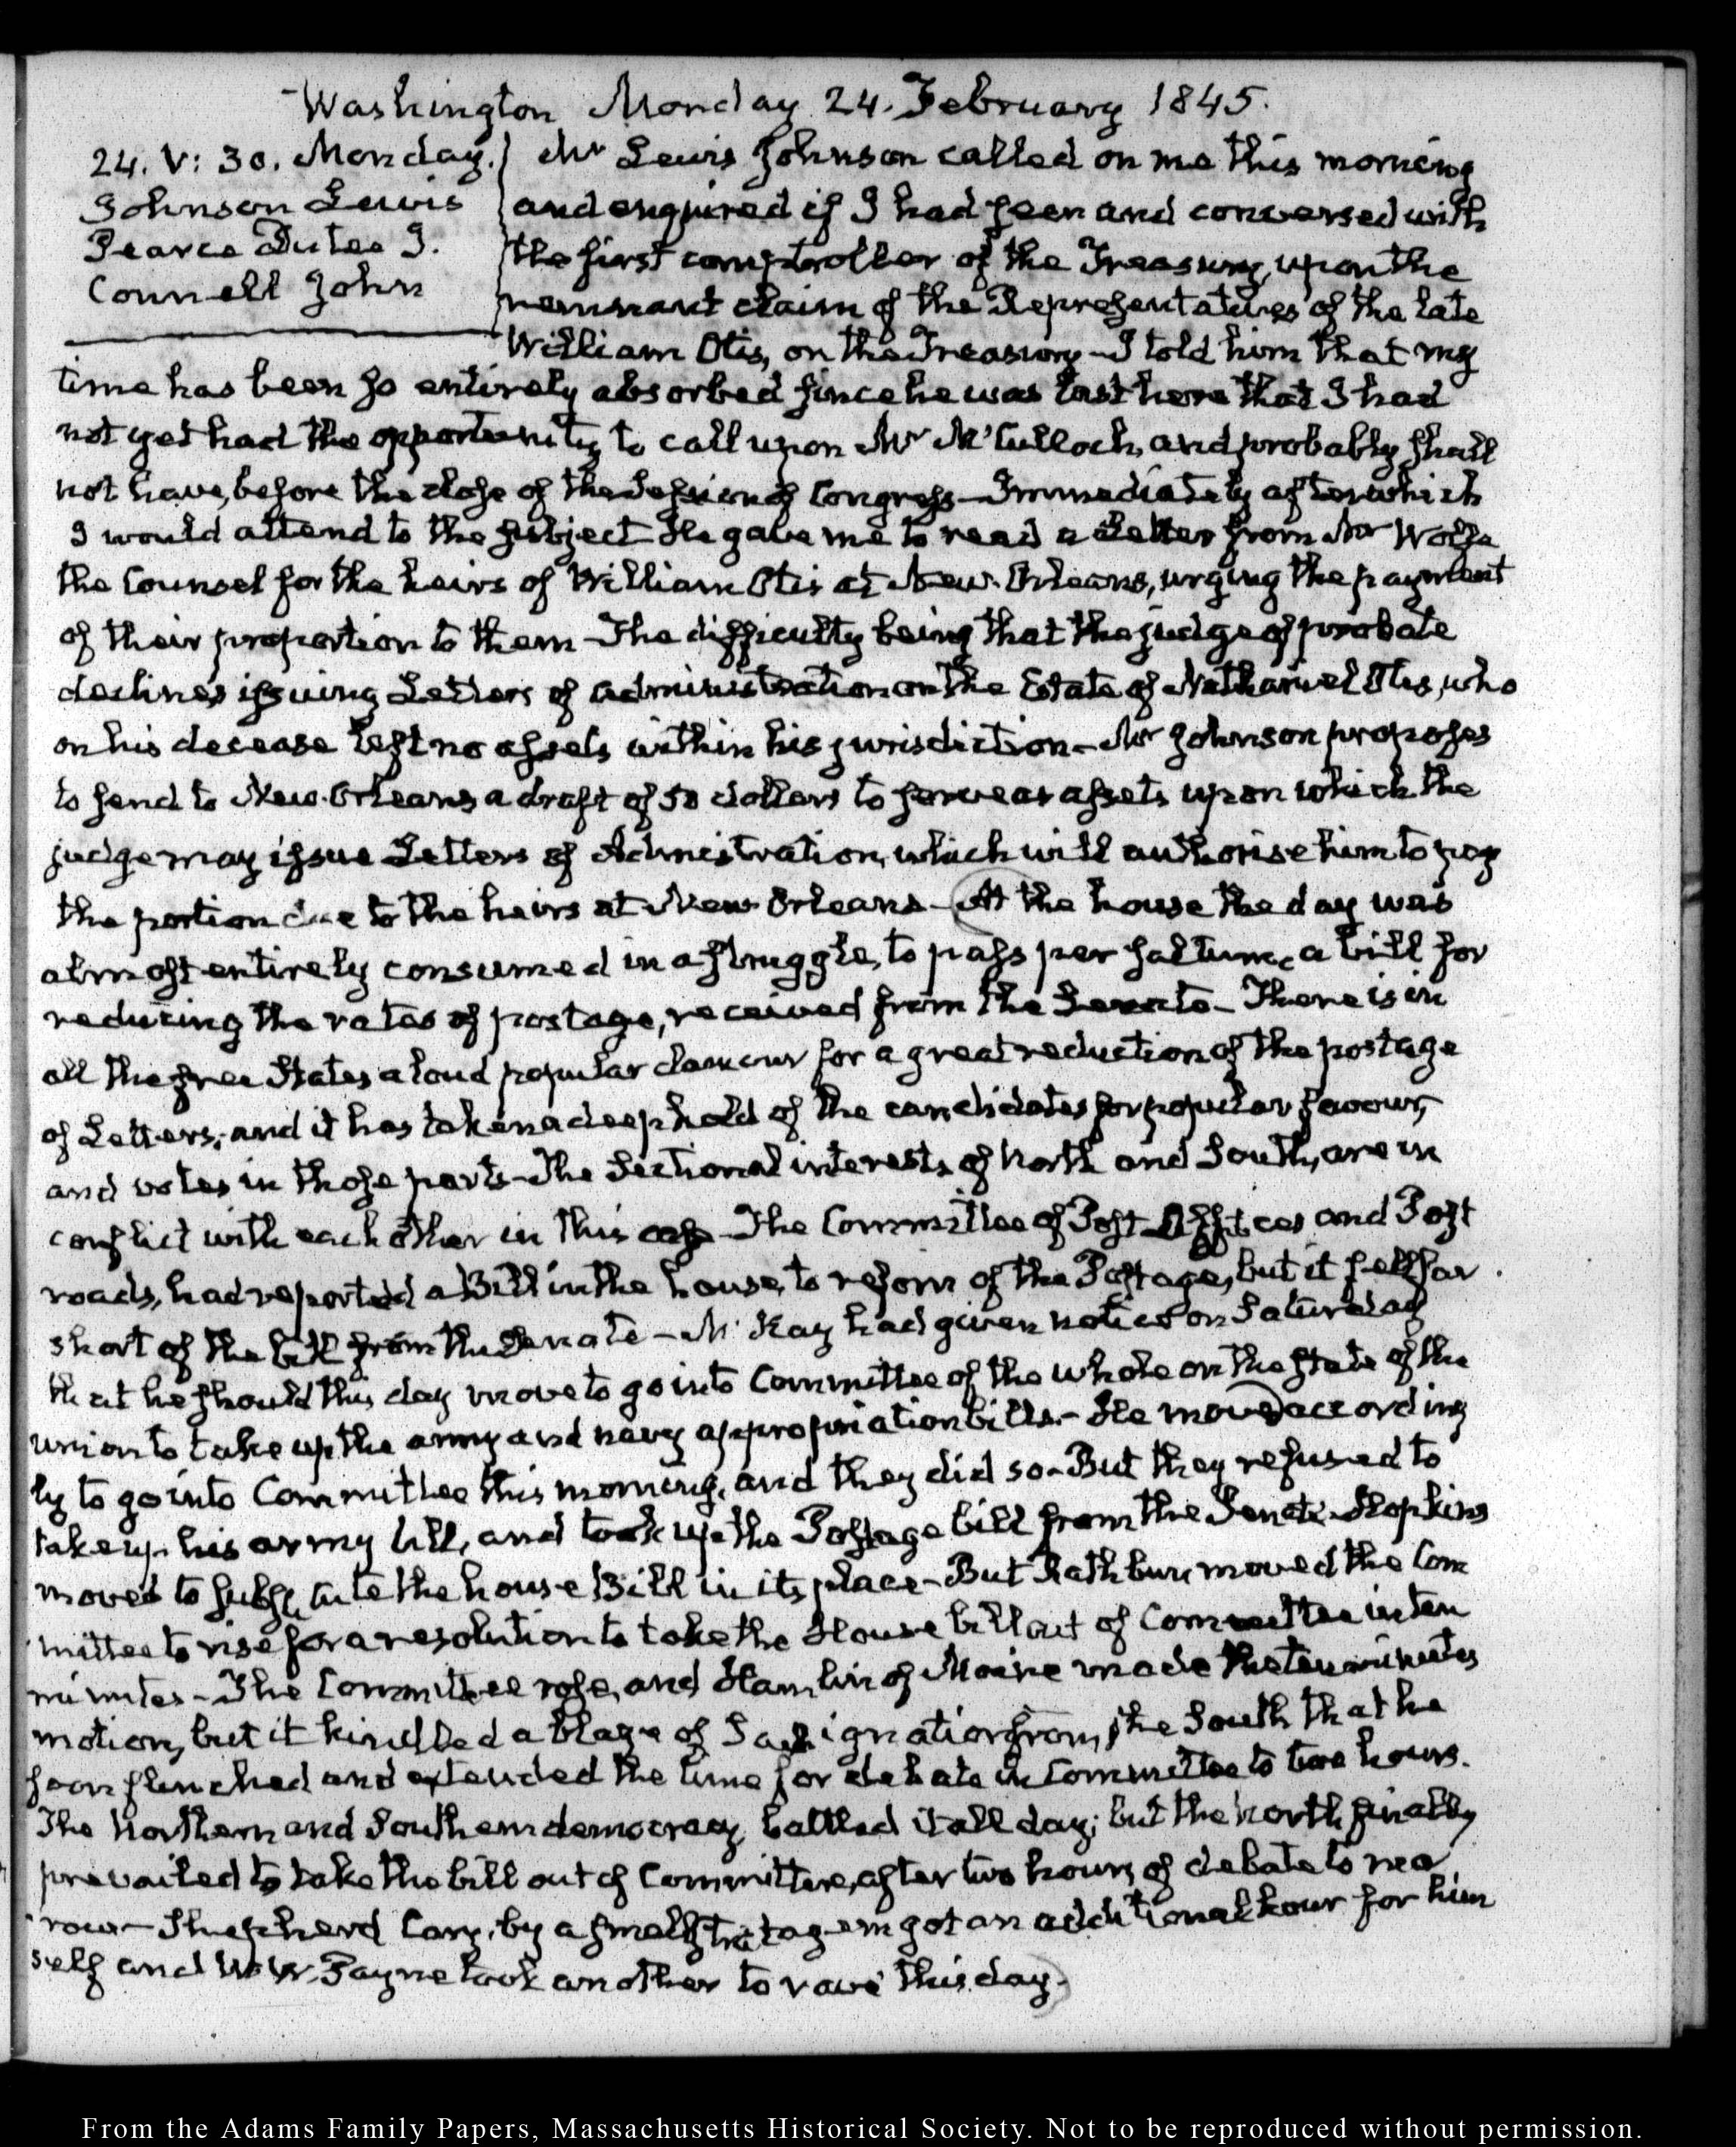 Washington Monday 24. February 1845.
24. V: 30. Monday.
Johnson Lewis
Pearce Dutee J.
Connell John
Mr Lewis Johnson called on me this morning
and enquired if I had seen and conversed with
the first comptroller of the Treasury, upon the
remnant claim of the Representatives of the late
William Otis, on the Treasury - I told him that my
time has been so entirely absorbed since he was last here that I had
not yet had the opportunity to call upon Mr McCulloch, and probably shall
not have, before the close of the Session of Congress - Immediately after which
I would attend to the subject - He gave me to read a Letter from Mr
the Counsel for the heirs of William Otis at New-Orleans, urging the payment
of their proportion to them - The difficulty being that the judge of probate
declines issuing Letters of administration on the Estate of Nathaniel Otis, who
on his decease left no assets within his jurisdiction - Mr Johnson proposes
to send to New-Orleans a draft of 50 dollars to serve as assets upon which the
judge may issue Letters of Admistration, which will authorise him to pay
the portion due to the heirs at New Orleans - At the house the day was
almost entirely consumed in a struggle, to pass per saltum, a bill for
reducing the rates of postage, received from the Senate - There is in
all the free States, a loud popular clamour for a great reduction of the postage
of Letters; and it has taken a deep hold of the candidates for popular favour,
and votes in those parts - The Sectional interests of North and South, are in
conflict with each other in this case - The Committee of Post Offices and Post
roads, had reported a Bill in the house, to reform of the Postage, but it fell far
short of the bill from the Senate - McKay had given notice on Saturday
that he should this day move to go into Committee of the whole on the state of the
union to take up the army and navy appropriation bills - He moved according
ly to go into Committee this morning, and they did so - But they refused to
take up his army bill, and took up the Postage bill from the Senate - Hopkins
moved to substitute the house Bill in its place - But Rathbun moved the Com
mittee to rise for a resolution to take the House bill out of Committee in ten
minutes - The Committee rose, and Hamlin of Maine made the ten minutes
motion, but it kindled a blaze of Indignation from the South that he
soon flinched and extended the time for debate in Committee to two hours.
The Northern and Southern democracy battled it all day; but the North finally
prevailed to take the bill out of Committee, after two hours of debate to mor
row - Shepherd Cary, by a small stratagem got an additional hour for him
self and W. W. Payne took another to rave this day.
From the Adams Family Papers, Massachusetts Historical Society. Not to be reproduced without permission.